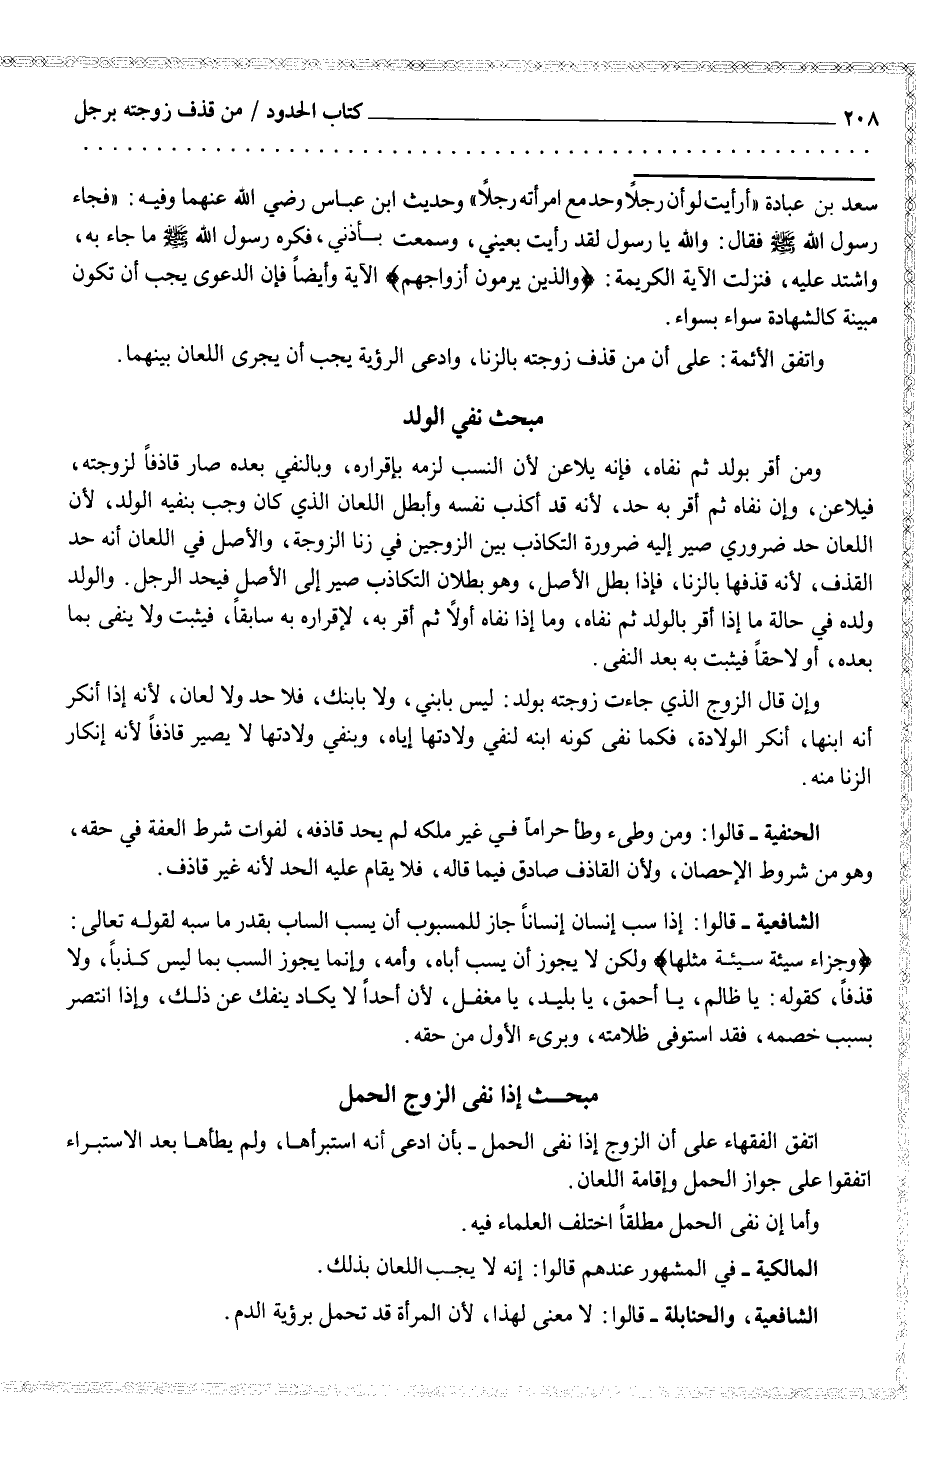 ٢٠٨ كتاب الحدود / من قذف زوجته برجل
سعد بن عبادة «أرأيت لو أن رجلاً وحد مع امرأته رجلاً» وحديث ابن عباس رضي الله عنهما وفيه: «فجاء
رسول الله ﷺ فقال: والله يا رسول لقد رأيت بعيني، وسمعت بأذني، فكره رسول الله ﷺ ما جاء به،
واشتد عليه، فنزلت الآية الكريمة: ﴿والذين يرمون أزواجهم﴾ الآية وأيضاً فإن الدعوى يجب أن تكون
مبينة كالشهادة سواء بسواء.
واتفق الأئمة: على أن من قذف زوجته بالزنا، وادعى الرؤية يجب أن يجرى اللعان بينهما.
مبحث نفي الولد
ومن أقر بولد ثم نفاه، فإنه يلاعن لأن النسب لزمه بإقراره، وبالنفي بعده صار قاذفاً لزوجته،
فيلاعن، وإن نفاه ثم أقر به حد، لأنه قد أكذب نفسه وأبطل اللعان الذي كان وجب بنفيه الولد، لأن
اللعان حد ضروري صير إليه ضرورة التكاذب بين الزوجين في زنا الزوجة، والأصل في اللعان أنه حد
القذف، لأنه قذفها بالزنا، فإذا بطل الأصل، وهو بطلان التكاذب صير إلى الأصل فيحد الرجل. والولد
ولده في حالة ما إذا أقر بالولد ثم نفاه، وما إذا نفاه أولاً ثم أقر به، لإقراره به سابقاً، فيثبت ولا ينفى بما
بعده، أو لاحقاً فيثبت به بعد النفى.
وإن قال الزوج الذي جاءت زوجته بولد: ليس بابني، ولا بابنك، فلا حد ولا لعان، لأنه إذا أنكر
أنه ابنها، أنكر الولادة، فكما نفى كونه ابنه لنفي ولادتها إياه، وبنفي ولادتها لا يصير قاذفاً لأنه إنكار
الزنا منه.
الحنفية ـ قالوا: ومن وطىء وطأ حراماً في غير ملكه لم يحد قاذفه، لفوات شرط العفة في حقه،
وهو من شروط الإحصان، ولأن القاذف صادق فيما قاله، فلا يقام عليه الحد لأنه غير قاذف.
الشافعية ـ قالوا: إذا سب إنسان إنساناً جاز للمسبوب أن يسب الساب بقدر ما سبه لقوله تعالى:
﴿وجزاء سيئة سيئة مثلها﴾ ولكن لا يجوز أن يسب أباه، وأمه، وإنما يجوز السب بما ليس كذباً، ولا
قذفاً، كقوله: يا ظالم، يا أحمق، يا بليد، يا مغفل، لأن أحداً لا يكاد ينفك عن ذلك، وإذا انتصر
بسبب خصمه، فقد استوفى ظلامته، وبرىء الأول من حقه.
مبحث إذا نفى الزوج الحمل
اتفق الفقهاء على أن الزوج إذا نفى الحمل ـ بأن ادعى أنه استبرأها، ولم يطأها بعد الاستبراء
اتفقوا على جواز الحمل وإقامة اللعان.
وأما إن نفى الحمل مطلقاً اختلف العلماء فيه.
المالكية ـ في المشهور عندهم قالوا: إنه لا يجب اللعان بذلك.
الشافعية، والحنابلة ـ قالوا: لا معنى لهذا، لأن المرأة قد تحمل برؤية الدم.